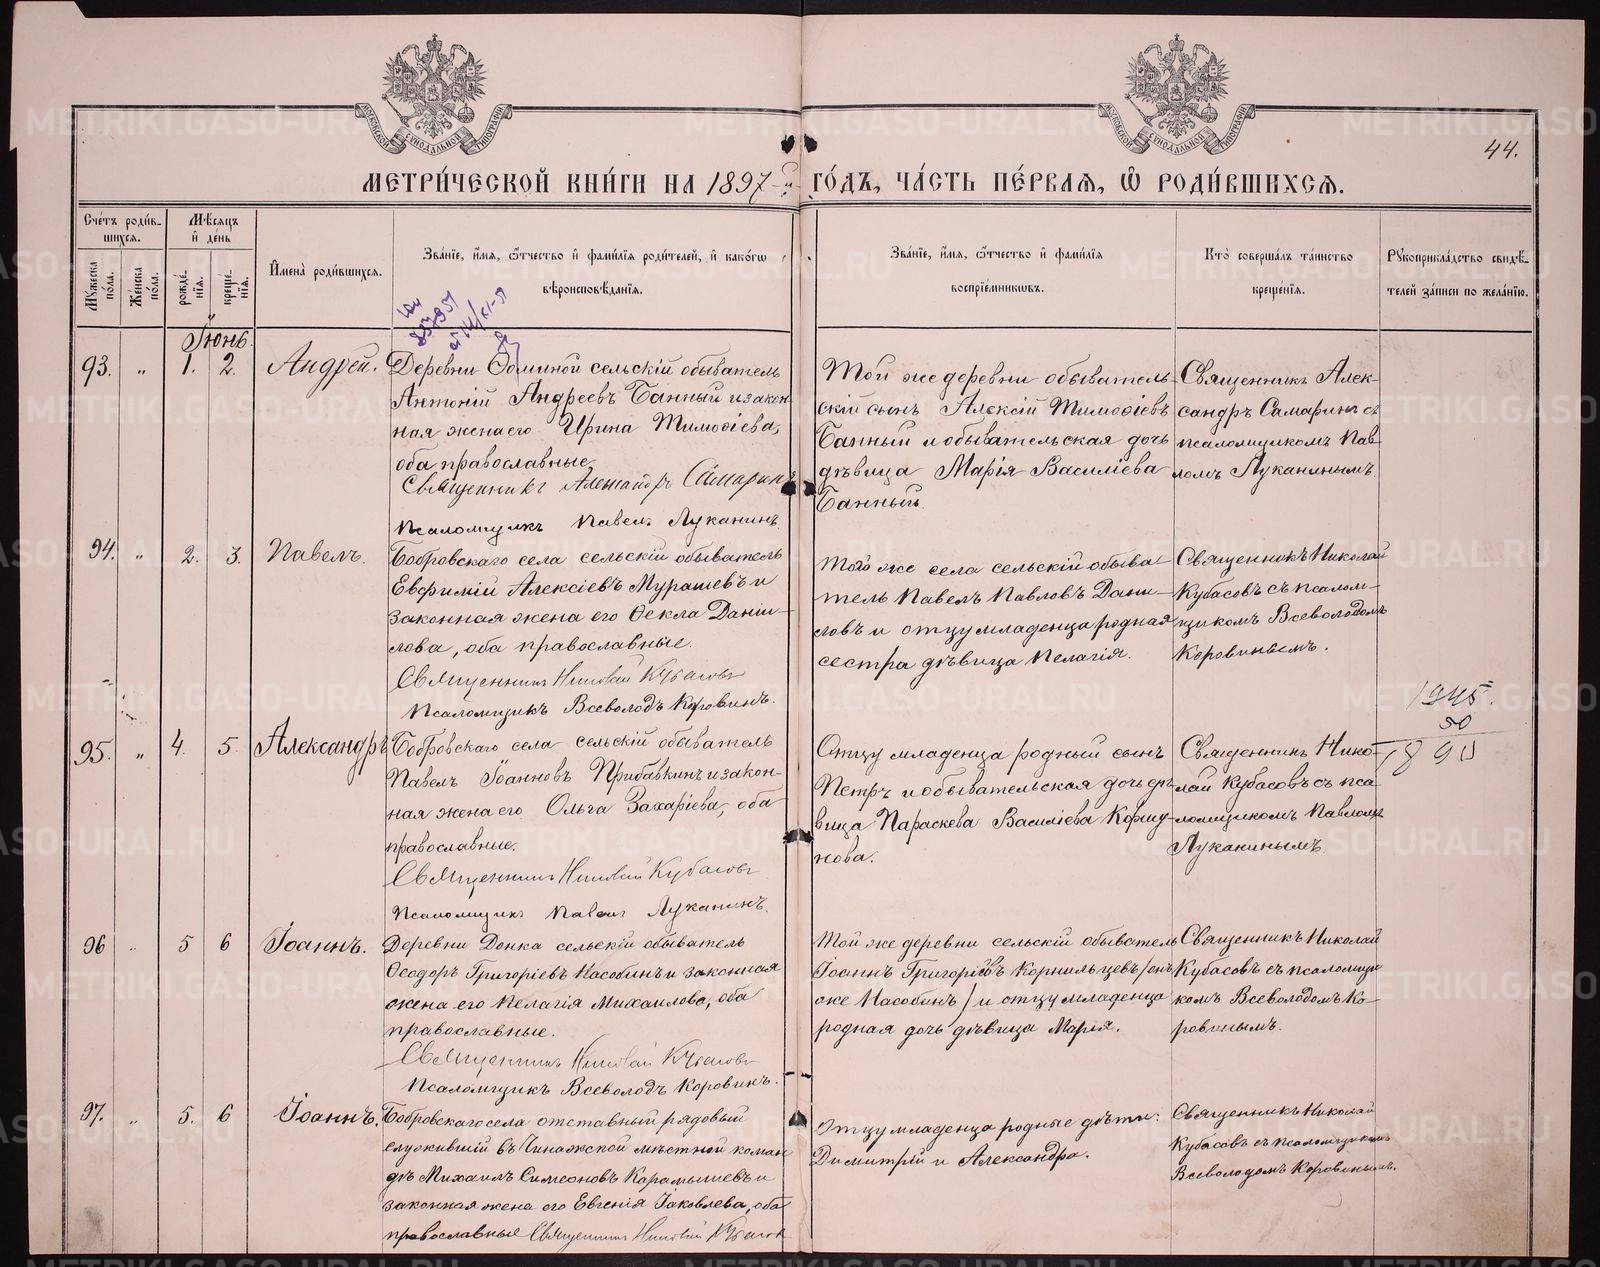 МОСКОВСКОЙ СѴНОДАЛЬНОЙ ТИПОГРАФІИ
МОСКОВСКОЙ СѴНОДАЛЬНОЙ ТИПОГРАФІИ
44.
МЕТРИ́ЧЕСКОЙ КНИ́ГИ НА 1897-й ГО́ДЪ, ЧА́СТЬ ПЕ́РВАЯ, Ѽ РОДИ́ВШИХСЯ.
Сче́тъ роди́в-
шихся.
Мꙋ́жеска по́ла.
Же́нска по́ла.
Мѣ́сяцъ
и҆ де́нь
рожде́-
нїя.
креще́-
нїя.
И҆мена̀ роди́вшихся.
Зва́нїе, и҆́мя, ѻ҆́тчество и҆ фами́лїя роди́телей, и҆ како́гѡ
вѣроисповѣ́данїя.
Зва́нїе, и҆́мя, ѻ҆́тчество и҆ фами́лїя
воспрїе́мникѡвъ.
Кто̀ соверша́лъ та́инство
креще́нїя.
Рꙋкоприкла́дство свидѣ́-
телей за́писи по жела́нїю.
Іюнь.
93. " 1. 2. Андрей.
Деревни Ѳоминой сельскій обыватель
Антоній Андреевъ Банный и закон
ная жена его Ирина Тимоѳіева,
оба православные
Священникъ Александръ Самаринъ
Псаломщикъ Павелъ Луканинъ
Той же деревни обыватель-
скій сынъ Алексій Тимоѳіевъ
Банный и обывательская дочь
дѣвица Марія Василіева
Банныхъ.
Священникъ Алек-
сандръ Самаринъ съ
псаломщикомъ Пав-
ломъ Луканинымъ
94. " 2. 3. Павелъ.
Бобровскаго села сельскій обыватель
Евфимій Алексіевъ Мурашевъ и
законная жена его Ѳекла Даніи-
лова, оба православные.
Священникъ Николай Кубасовъ
Псаломщикъ Всеволодъ Коровинъ.
Того же села сельскій обыва-
тель Павелъ Павловъ Дани-
ловъ и отцу младенца родная
сестра дѣвица Пелагія.
Священникъ Николай
Кубасовъ съ псалом-
щикомъ Всеволодомъ
Коровинымъ.
1945.
50
1890
95. " 4. 5. Александръ
Бобровскаго села сельскій обыватель
Павелъ Іоанновъ Прибавкинъ и закон-
ная жена его Ольга Захаріева, оба
православные.
Священникъ Николай Кубасовъ
Псаломщикъ Павелъ Луканинъ.
Отцу младенца родный сынъ
Петръ и обывательская дочь дѣ-
вица Параскева Василіева Коршу-
нова.
Священникъ Нико-
лай Кубасовъ съ пса-
ломщикомъ Павломъ
Луканинымъ
96 " 5 6 Іоаннъ.
Деревни Донка сельскій обыватель
Ѳеодоръ Григоріевъ Насобинъ и законная
жена его Пелагія Михаилова, оба
православные.
Священникъ Николай Кубасовъ
Псаломщикъ Всеволодъ Коровинъ.
Той же деревни сельскій обыватель
Іоаннъ Григоріевъ Корнильцевъ /онъ
же Насобинъ/ и отцу младенца
родная дочь дѣвица Марія.
Священникъ Николай
Кубасовъ съ псаломщи
комъ Всеволодомъ Ко-
ровинымъ.
97. " 5. 6 Іоаннъ.
Бобровскаго села отставный рядовый
служившій въ мѣстной коман
дѣ Михаилъ Симеоновъ Карамышевъ и
законная жена его Евгенія Іаковлева, оба
православные Священникъ Николай Кубасовъ
Отцу младенца родные дѣти:
Димитрій и Александра.
Священникъ Николай
Кубасовъ съ псаломщикомъ
Всеволодомъ Коровинымъ.
METRIKI.GASO-URAL.RU